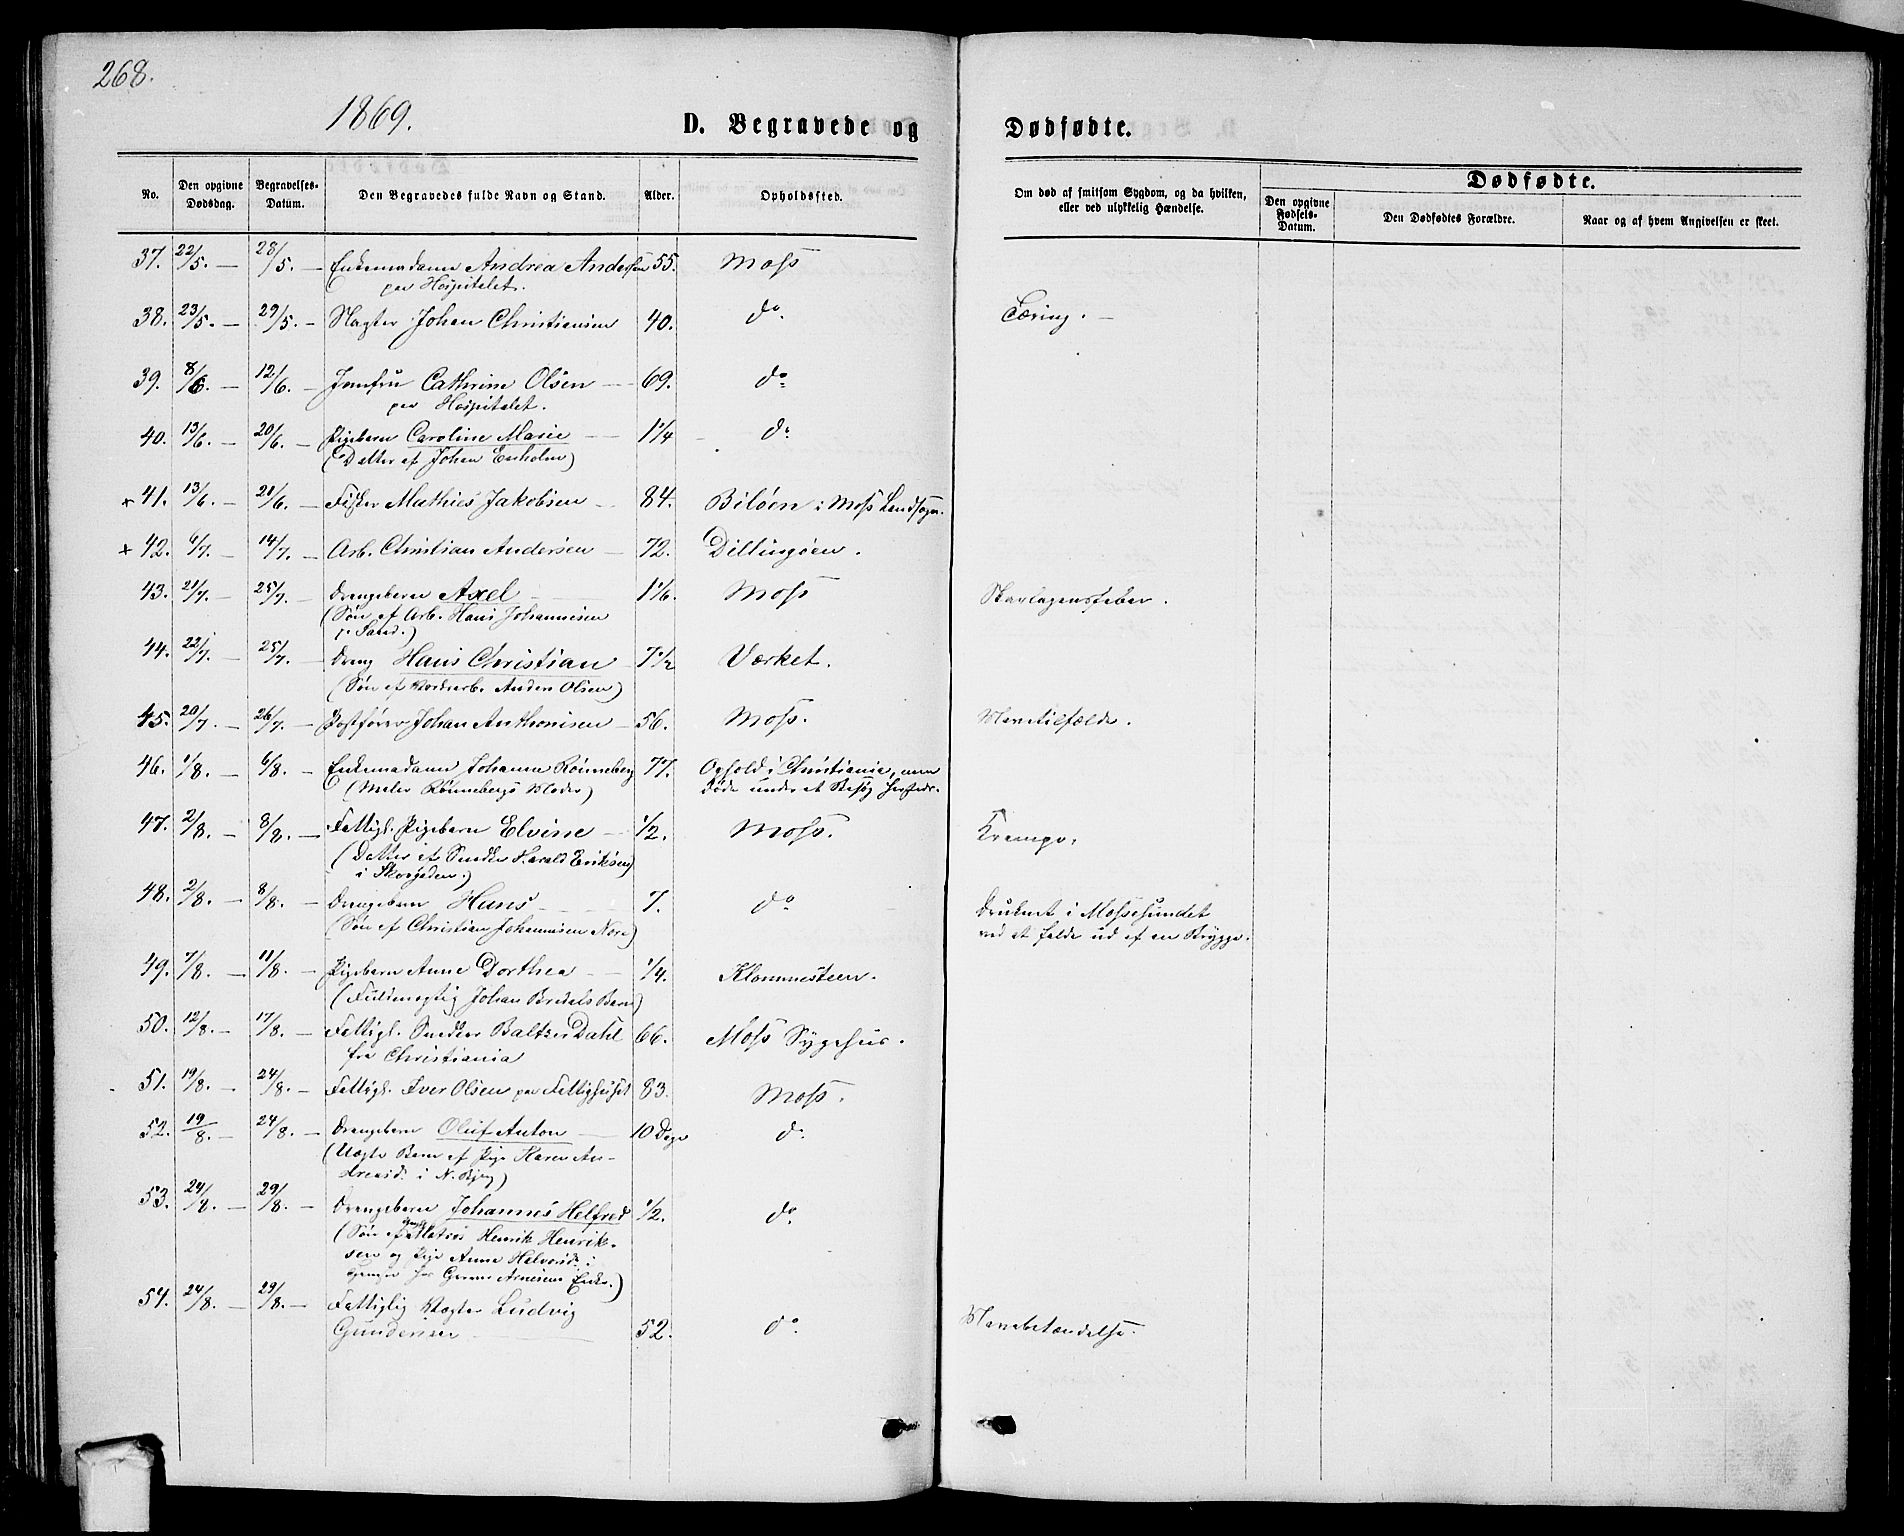 268.
1869.
D. Begravede og Dødfødte.
No. Den opgivne Dødsdag. Begravelses-Datum. Den Begravedes fulde Navn og Stand. Alder. Opholdssted. Om død af smitsom Sygdom, og da hvilken, eller ved ulykkelig Hændelse. Dødfødte.
Den opgivne Fødsels-Datum. Den Dødfødtes Forældre. Naar og af hvem Angivelsen er skeet.
37. 22/5. — 28/5. — Enkemadame Andrea Andersen 55. Moss
paa Hospitalet.
38. 23/5. — 29/5. — Slagter Johan Christiansen 40. do. Tæring. —
39. 8/6. — 12/6. — Jomfru Cathrine Olsen — 69. do.
paa Hospitalet.
40. 13/6. — 20/6. — Pigebarn Caroline Marie — 1 1/4 do.
(Datter af Johan Enholm)
x 41. 13/6. — 21/6. — Fisker Mathies Jakobsen — 84. Biløen i Moss Landsogn.
x 42. 6/7. — 14/7. — Arb. Christian Andersen — 72. Dillingøen.
43. 21/7. — 25/7. — Drengebarn Axel — 1 1/6. Moss Skarlagensfeber.
(Søn af Arb. Hans Johannesen
p. Sand.)
44. 22/7. — 25/7. — Dreng Hans Christian — 7 1/2 Værket.
(Søn af Værksarb. Anders Olsen)
45. 20/7. — 26/7. — Postfører Johan Anthonisen — 56. Moss. Mavetilfælde.
46. 1/8. — 6/8. — Enkemadame Johanne Rönneberg 77. Ophold i Christiania, men
(Maler Rönnebergs Moder) døde under et Besøg herstedr.
47. 2/8. — 8/8. — Fattigl. Pigebarn Elvine — 1/2. Moss. Krampe.
(Datter af Snedker Harald Eriksen
i Skovgaden.)
48. 2/8. — 8/8. — Drengebarn Hans — 7. do — Druknet i Mossesundet
(Søn af Christian Johannesen Nore) ved at falde ud af en Brygge.
49. 7/8. — 11/8. — Pigebarn Anne Dorthea — 1/4. Klommesteen.
(Fuldmægtig Johan Bredals Barn)
50. 12/8. — 17/8. — Fattigl. Snedker Baltser Dahl 66. Moss Sygehus.
fra Christiania
51. 19/8. — 24/8. — Fattigl. Iver Olsen paa Fattighuset 83. Moss.
52. 19/8. — 24/8. — Drengebarn Oluf Anton — 10 Dage do.
(Uægte Barn af Pige Karen An-
dreasd. i N. Bjeg)
53. 24/8. — 29/8. — Drengebarn Johannes Helfred 1/2. do.
(Søn af Matros Henrik Henrik-
sen og Pige Anne Halvorsd. i
Arnesens Enke.)
54. 24/8. — 29/8. — Fattiglig Vægter Ludvig
Gundersen — 52. do. Mavebetændelse.